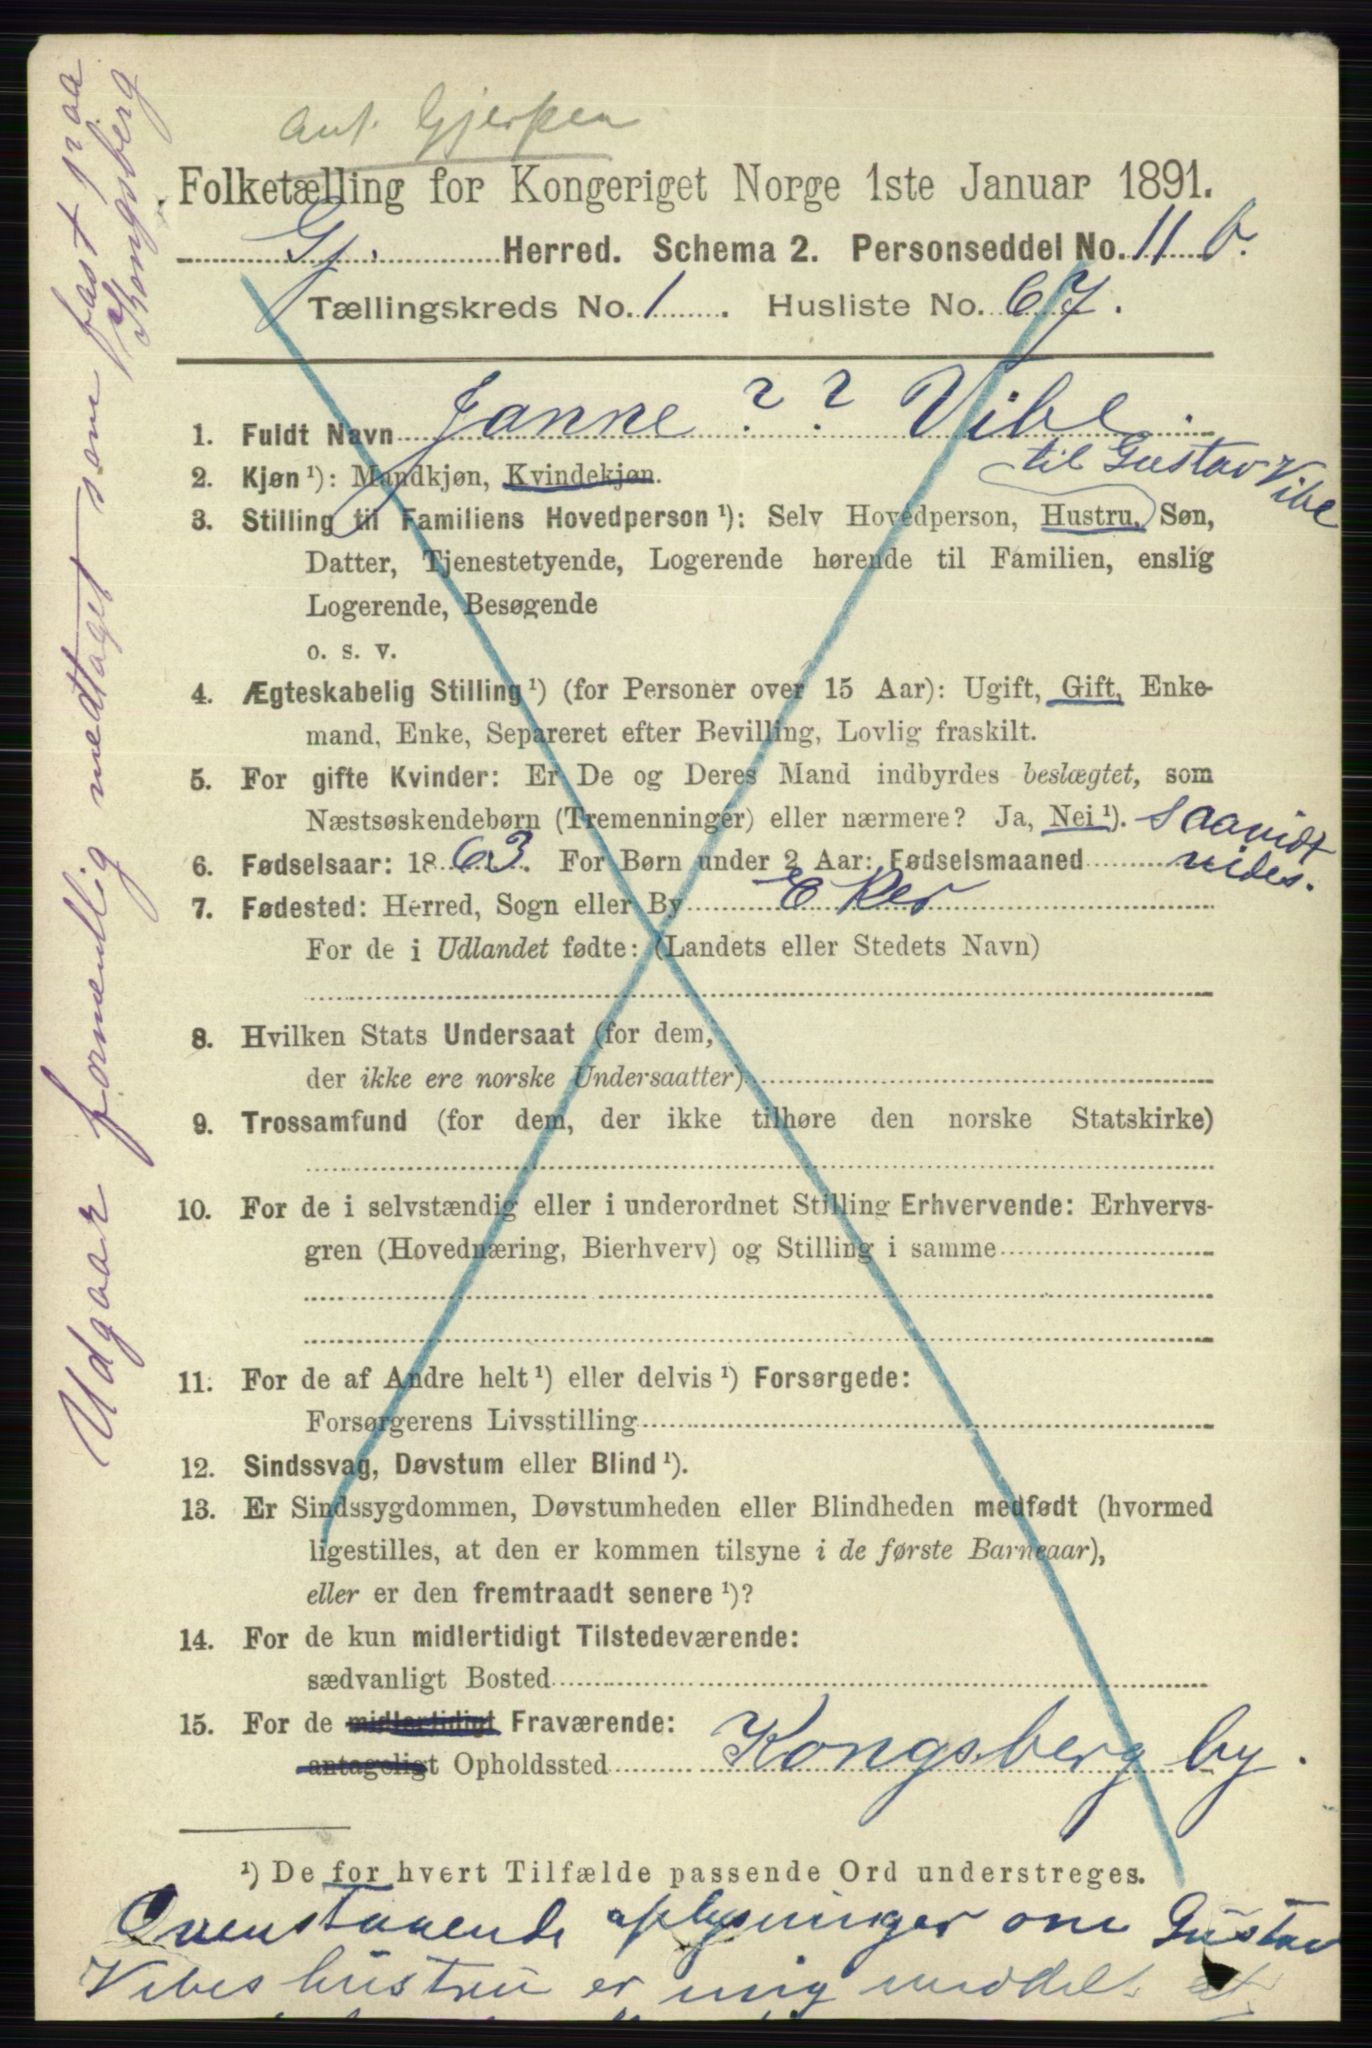 ant. Gjerpen
Folketælling for Kongeriget Norge 1ste Januar 1891.
Gj. Herred. Schema 2. Personseddel No. 11 b.
Tællingskreds No. 1. Husliste No. 67.
1. Fuldt Navn Janne ? ? Vibe.
til Gustav Vibe
2. Kjøn ¹): Mandkjøn, Kvindekjøn.
3. Stilling til Familiens Hovedperson ¹): Selv Hovedperson, Hustru, Søn,
Datter, Tjenestetyende, Logerende hørende til Familien, enslig
Logerende, Besøgende
o. s. v.
4. Ægteskabelig Stilling ¹) (for Personer over 15 Aar): Ugift, Gift, Enke-
mand, Enke, Separeret efter Bevilling, Lovlig fraskilt.
5. For gifte Kvinder: Er De og Deres Mand indbyrdes beslægtet, som
Næstsøskendebørn (Tremenninger) eller nærmere? Ja, Nei ¹). saavidt
vides.
6. Fødselsaar: 1863. For Børn under 2 Aar: Fødselsmaaned
7. Fødested: Herred, Sogn eller By Eker
For de i Udlandet fødte: (Landets eller Stedets Navn)
8. Hvilken Stats Undersaat (for dem,
der ikke ere norske Undersaatter)
9. Trossamfund (for dem, der ikke tilhøre den norske Statskirke)
10. For de i selvstændig eller i underordnet Stilling Erhvervende: Erhvervs-
gren (Hovednæring, Bierhverv) og Stilling i samme
11. For de af Andre helt ¹) eller delvis ¹) Forsørgede:
Forsørgerens Livsstilling
12. Sindssvag, Døvstum eller Blind ¹).
13. Er Sindssygdommen, Døvstumheden eller Blindheden medfødt (hvormed
ligestilles, at den er kommen tilsyne i de første Barneaar),
eller er den fremtraadt senere ¹)?
14. For de kun midlertidigt Tilstedeværende:
sædvanligt Bosted
15. For de midlertidigt Fraværende:
antageligt Opholdssted Kongsberg by.
¹) De for hvert Tilfælde passende Ord understreges.
Ovenstaaende oplysninger om Gustav
Vibes hustru er mig meddelt
Udgaar formentlig medtaget som fast paa
Kongsberg